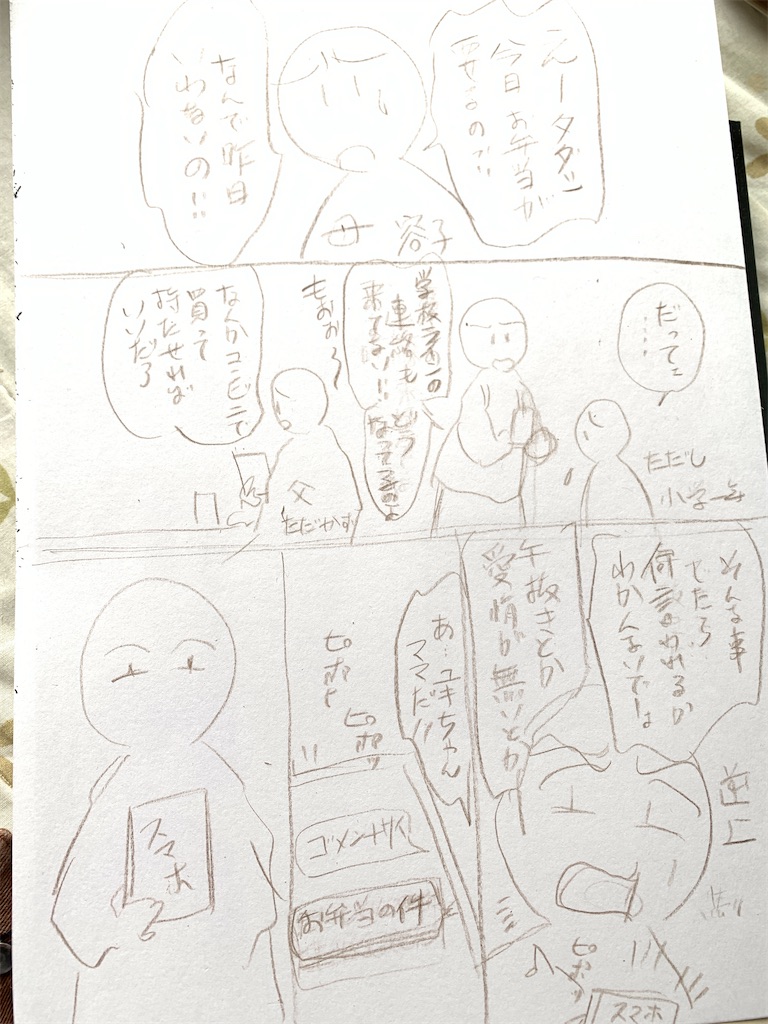 えータダシ
今日お弁当が
要るの!!
なんで昨日
いわないの!!
母 容子
だってェ
……
ただし
小学一年
学校ラインの
連絡も
来てない!!
どう
なってるのよ
もおお〜
なんかコンビニで
買って
持たせれば
いいだろ
父
ただかず
そんな事
してたら
何言われるか
わかんないでしょ
手抜きとか
愛情が無いとか
逆上
ピポッ
スマホ
あ…ユキちゃん
ママだ!!
ピポッ
ピポッ
ゴメンナサイ
お弁当の件
スマホ